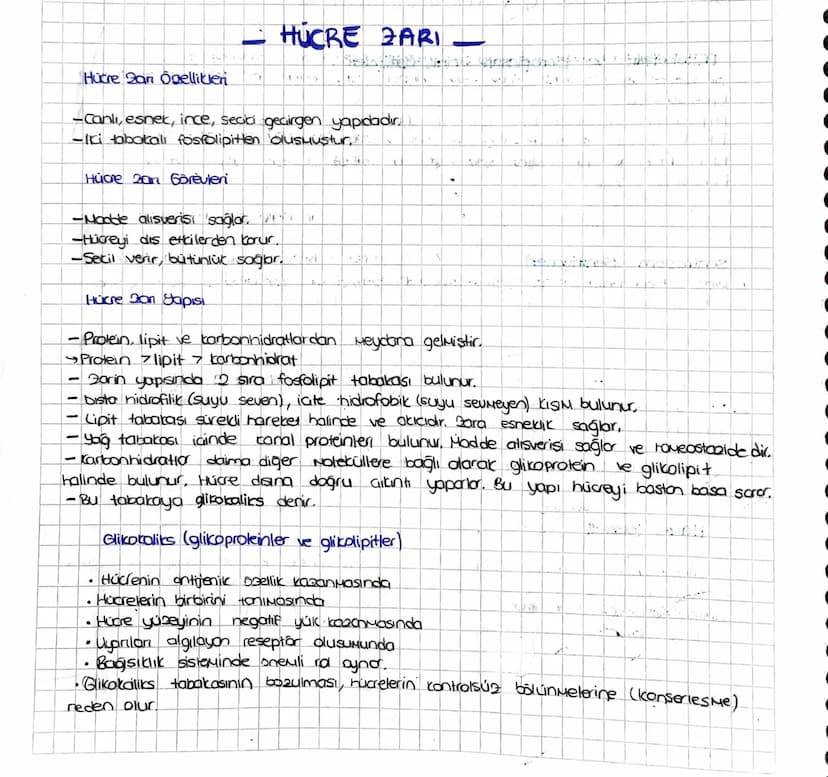 - HÜCRE ZARI -
Hücre Zarı Özellikleri
-Canlı, esnek, ince, secici gecirgen yapıdadır.
-İki tabakalı fosfolipitten olusmustur.
Hücre Zarı Görevleri
-Madde alısverisi sağlar.
-Hücreyi dıs etkilerden korur.
-Sekil verir, bütünlük sağlar.
Hücre Zarı Yapısı
-Protein, lipit ve karbonhidratlardan meydana gelmistir.
→Protein > lipit > karbonhidrat
- Zarın yapısında 2 sıra fosfolipit tabakası bulunur.
- Dısta hidrofilik (suyu seven), icte hidrofobik (suyu sevmeyen) kısım bulunur.
- Lipit tabakası sürekli hareket halinde ve akıcıdır. Zara esneklik sağlar.
- Yağ tabakası icinde kanal proteinleri bulunur. Madde alısverisi sağlar ve
- Karbonhidratlar daima diger moleküllere bağlı olarak glikoprotein ve glikolipit
halinde bulunur. Hücre dısına doğru cıkıntı yaparlar. Bu yapı hücreyi bastan basa sarar.
- Bu tabakaya glikokaliks denir.
Glikokaliks (glikoproteinler ve glikolipitler)
• Hücrenin antijenik özellik kazanmasında
• Hücrelerin birbirini tanımasında
• Hücre yüzeyinin negatif yük kazanmasında
• Uyarıları algılayan reseptör olusumunda
• Bağısıklık sisteminde önemli rol oynar.
• Glikokaliks tabakasının bozulması, hücrelerin kontrolsüz bölünmelerine (kanserlesme)
neden olur.